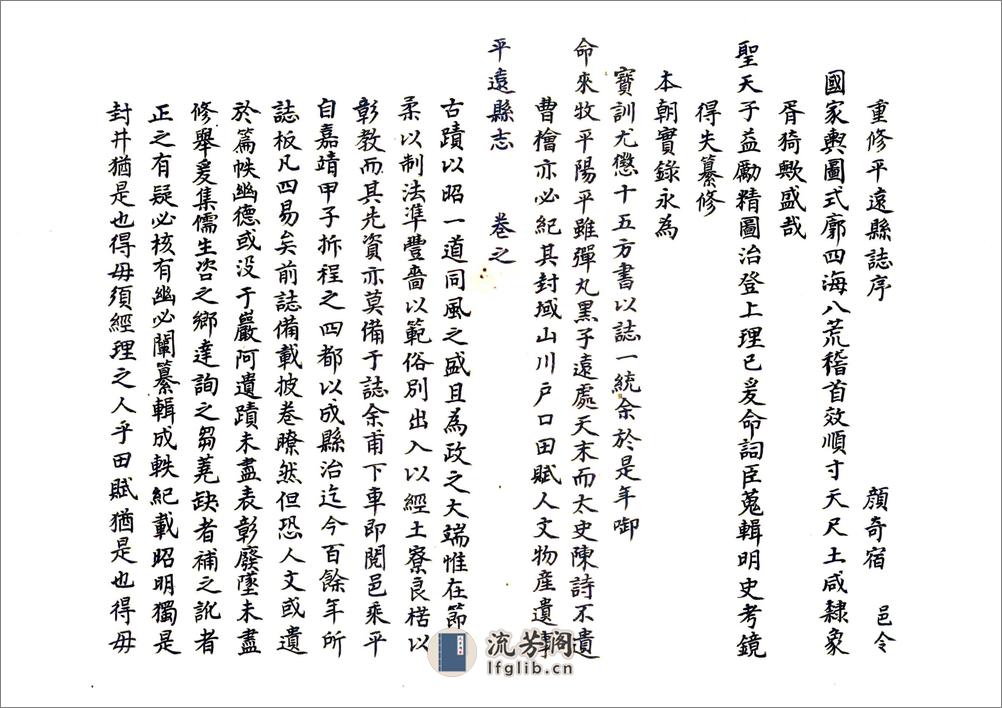 重修平遠縣誌序 顏奇宿 邑令
國家輿圖式廓四海八荒稽首效順寸天尺土咸隸象
胥猗歟盛哉
聖天子益勵精圖治登上理已爰命詞臣蒐輯明史考鏡
得失纂修
本朝實錄永為
寶訓尤懲十五方書以誌一統余於是年啣
命來牧平陽平雖彈丸黑子遠處天末而太史陳詩不遺
曹檜亦必紀其封域山川戶口田賦人文物產遺事
平遠縣志 卷之
古蹟以昭一道同風之盛且為政之大端惟在節
柔以制法準豐嗇以範俗別出入以經土寮良楛以
彰教而其先資亦莫備于誌余甫下車即閱邑乘平
自嘉靖甲子拆程之四都以成縣治迄今百餘年所
誌板凡四易矣前誌備載披卷瞭然但恐人文或遺
於篇帙幽德或沒于巖阿遺蹟未盡表彰廢墜未盡
修舉爰集儒生咨之鄉達詢之芻蕘缺者補之訛者
正之有疑必核有幽必闡纂輯成軼紀載昭明獨是
封井猶是也得毋須經理之人乎田賦猶是也得毋
流芳阁
lfglib.cn